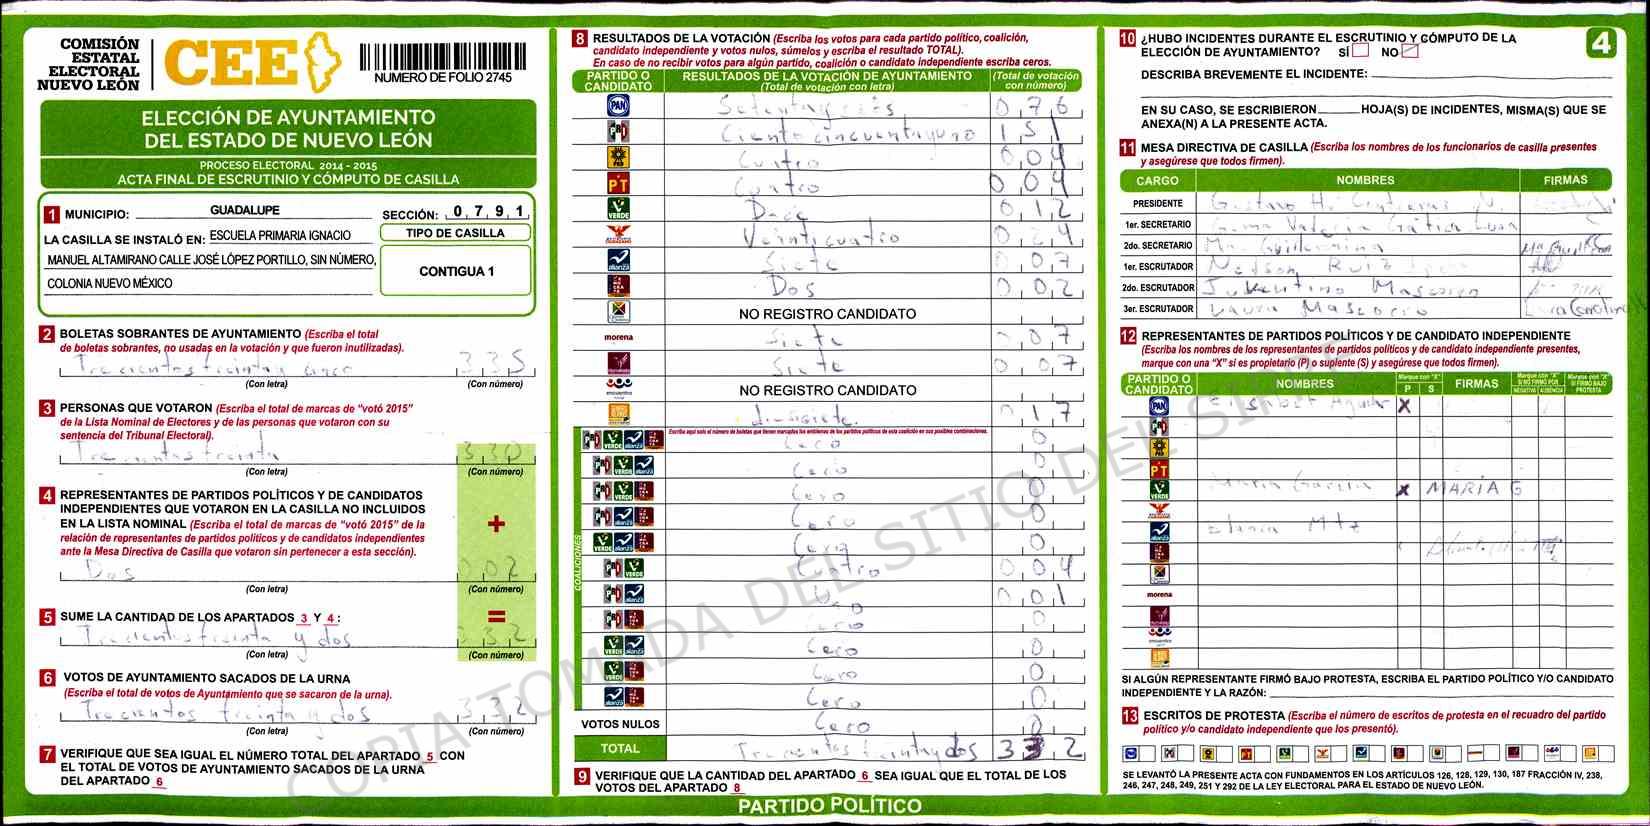 COMISIÓN
ESTATAL
ELECTORAL
NUEVO LEÓN
CEE
NUMERO DE FOLIO 2745
ELECCIÓN DE AYUNTAMIENTO
DEL ESTADO DE NUEVO LEÓN
PROCESO ELECTORAL 2014 - 2015
ACTA FINAL DE ESCRUTINIO Y CÓMPUTO DE CASILLA
1 MUNICIPIO: GUADALUPE SECCIÓN: 0 7 9 1
LA CASILLA SE INSTALÓ EN: ESCUELA PRIMARIA IGNACIO
MANUEL ALTAMIRANO CALLE JOSÉ LÓPEZ PORTILLO, SIN NÚMERO,
COLONIA NUEVO MÉXICO
TIPO DE CASILLA
CONTIGUA 1
2 BOLETAS SOBRANTES DE AYUNTAMIENTO (Escriba el total
de boletas sobrantes, no usadas en la votación y que fueron inutilizadas).
Trecientos treinta cinco 3 3 5
(Con letra) (Con número)
3 PERSONAS QUE VOTARON (Escriba el total de marcas de “votó 2015”
de la Lista Nominal de Electores y de las personas que votaron con su
sentencia del Tribunal Electoral).
Trecientos treinta 3 3 0
(Con letra) (Con número)
4 REPRESENTANTES DE PARTIDOS POLÍTICOS Y DE CANDIDATOS
INDEPENDIENTES QUE VOTARON EN LA CASILLA NO INCLUIDOS
EN LA LISTA NOMINAL (Escriba el total de marcas de “votó 2015” de la
relación de representantes de partidos políticos y de candidatos independientes
ante la Mesa Directiva de Casilla que votaron sin pertenecer a esta sección).
+
Dos 0 0 2
(Con letra) (Con número)
5 SUME LA CANTIDAD DE LOS APARTADOS 3 Y 4:
=
Trecientos treinta y dos 3 3 2
(Con letra) (Con número)
6 VOTOS DE AYUNTAMIENTO SACADOS DE LA URNA
(Escriba el total de votos de Ayuntamiento que se sacaron de la urna).
Trecientos treinta y dos 3 3 2
(Con letra) (Con número)
7 VERIFIQUE QUE SEA IGUAL EL NÚMERO TOTAL DEL APARTADO 5 CON
EL TOTAL DE VOTOS DE AYUNTAMIENTO SACADOS DE LA URNA
DEL APARTADO 6
8 RESULTADOS DE LA VOTACIÓN (Escriba los votos para cada partido político, coalición,
candidato independiente y votos nulos, súmelos y escriba el resultado TOTAL).
En caso de no recibir votos para algún partido, coalición o candidato independiente escriba ceros.
PARTIDO O CANDIDATO RESULTADOS DE LA VOTACIÓN DE AYUNTAMIENTO (Total de votación con letra) (Total de votación con número)
PAN Setentayseis 0 7 6
PRI Cientocincuentayuno 1 5 1
PRD Cuatro 0 0 4
PT Cuatro 0 0 4
VERDE Doce 0 1 2
Veinticuatro 0 2 4
alianza Siete 0 0 7
Dos 0 0 2
NO REGISTRO CANDIDATO
morena Siete 0 0 7
Siete 0 0 7
encuentro NO REGISTRO CANDIDATO
diecisiete 0 1 7
Escriba aquí solo el número de boletas que tienen marcados los emblemas de los partidos políticos de esta coalición en sus posibles combinaciones.
COALICIONES
PRI VERDE alianza Cero 0
PRI VERDE alianza Cero 0
PRI VERDE Cero 0
PRI alianza Cero 0
VERDE alianza Cero 0
PRI VERDE Cuatro 0 0 4
PRI alianza Uno 0 0 1
PRI Cero 0
VERDE alianza Cero 0
VERDE Cero 0
alianza Cero 0
VOTOS NULOS Cero 0
TOTAL Trecientos treintaydos 3 3 2
9 VERIFIQUE QUE LA CANTIDAD DEL APARTADO 6 SEA IGUAL QUE EL TOTAL DE LOS
VOTOS DEL APARTADO 8
PARTIDO POLÍTICO
4
10 ¿HUBO INCIDENTES DURANTE EL ESCRUTINIO Y CÓMPUTO DE LA
ELECCIÓN DE AYUNTAMIENTO? SÍ NO
DESCRIBA BREVEMENTE EL INCIDENTE:
EN SU CASO, SE ESCRIBIERON HOJA(S) DE INCIDENTES, MISMA(S) QUE SE
ANEXA(N) A LA PRESENTE ACTA.
11 MESA DIRECTIVA DE CASILLA (Escriba los nombres de los funcionarios de casilla presentes
y asegúrese que todos firmen).
CARGO NOMBRES FIRMAS
PRESIDENTE Gustavo H. Contreras
1er. SECRETARIO Valeria
2do. SECRETARIO Ma. Guillermina
1er. ESCRUTADOR Nelson Ruiz
2do. ESCRUTADOR Juventino
3er. ESCRUTADOR Laura
12 REPRESENTANTES DE PARTIDOS POLÍTICOS Y DE CANDIDATO INDEPENDIENTE
(Escriba los nombres de los representantes de partidos políticos y de candidato independiente presentes,
marque con una “X” si es propietario (P) o suplente (S) y asegúrese que todos firmen).
PARTIDO O CANDIDATO NOMBRES Marque con "X" P S FIRMAS Marque con "X" SI NO FIRMÓ POR NEGATIVA AUSENCIA Marque con "X" SI FIRMÓ BAJO PROTESTA
PAN Elisabet Aguilar X
PRD
PT
VERDE Maria Garcia X MARIA G
alianza Mtz
morena
encuentro
SI ALGÚN REPRESENTANTE FIRMÓ BAJO PROTESTA, ESCRIBA EL PARTIDO POLÍTICO Y/O CANDIDATO
INDEPENDIENTE Y LA RAZÓN:
13 ESCRITOS DE PROTESTA (Escriba el número de escritos de protesta en el recuadro del partido
político y/o candidato independiente que los presentó).
SE LEVANTÓ LA PRESENTE ACTA CON FUNDAMENTOS EN LOS ARTÍCULOS 126, 128, 129, 130, 187 FRACCIÓN IV, 238,
246, 247, 248, 249, 251 Y 292 DE LA LEY ELECTORAL PARA EL ESTADO DE NUEVO LEÓN.
COPIA TOMADA DEL SITIO DEL SIPRE